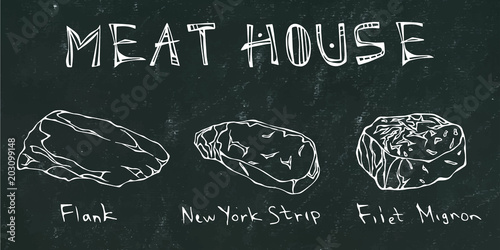 MEAT HOUSE
Flank
New York Strip
Filet Mignon
Adobe Stock | #203099148